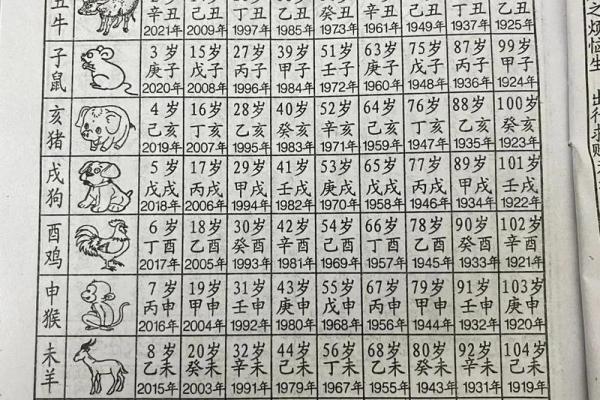 丑
牛
辛丑 己丑 丁丑 乙丑 癸丑 辛丑 己丑 丁丑 乙丑
2021年 2009年 1997年 1985年 1973年 1961年 1949年 1937年 1925年
子
鼠
3岁 15岁 27岁 39岁 51岁 63岁 75岁 87岁 99岁
庚子 戊子 丙子 甲子 壬子 庚子 戊子 丙子 甲子
2020年 2008年 1996年 1984年 1972年 1960年 1948年 1936年 1924年
亥
猪
4岁 16岁 28岁 40岁 52岁 64岁 76岁 88岁 100岁
己亥 丁亥 乙亥 癸亥 辛亥 己亥 丁亥 乙亥 癸亥
2019年 2007年 1995年 1983年 1971年 1959年 1947年 1935年 1923年
戌
狗
5岁 17岁 29岁 41岁 53岁 65岁 77岁 89岁 101岁
戊戌 丙戌 甲戌 壬戌 庚戌 戊戌 丙戌 甲戌 壬戌
2018年 2006年 1994年 1982年 1970年 1958年 1946年 1934年 1922年
酉
鸡
6岁 18岁 30岁 42岁 54岁 66岁 78岁 90岁 102岁
丁酉 乙酉 癸酉 辛酉 己酉 丁酉 乙酉 癸酉 辛酉
2017年 2005年 1993年 1981年 1969年 1957年 1945年 1933年 1921年
申
猴
7岁 19岁 31岁 43岁 55岁 67岁 79岁 91岁 103岁
丙申 甲申 壬申 庚申 戊申 丙申 甲申 壬申 庚申
2016年 2004年 1992年 1980年 1968年 1956年 1944年 1932年 1920年
未
羊
8岁 20岁 32岁 44岁 56岁 68岁 80岁 92岁 104岁
乙未 癸未 辛未 己未 丁未 乙未 癸未 辛未 己未
2015年 2003年 1991年 1979年 1967年 1955年 1943年 1931年 1919年
之烦恼生 出行求财